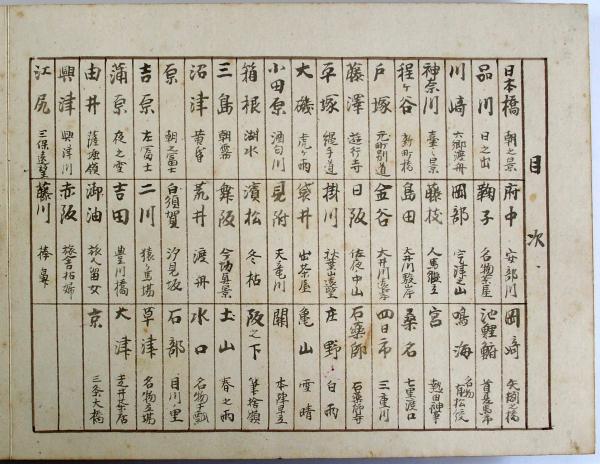 目次
日本橋 朝之景
品川 日之出
川崎 六郷渡舟
神奈川 臺之景
程ヶ谷 新町橋
戸塚 元町別道
藤澤 遊行寺
平塚 縄手道
大磯 虎ヶ雨
小田原 酒匂川
箱根 湖水
三島 朝霧
沼津 黄昏
原 朝之冨士
吉原 左冨士
蒲原 夜之雪
由井 薩埵嶺
興津 興津川
江尻 三保遠望
府中 安部川
鞠子 名物茶屋
岡部 宇津之山
藤枝 人馬継立
島田 大井川駿岸
金谷 大井川遠岸
日阪 佐夜中山
掛川 秋葉山遠望
袋井 出茶屋
見附 天竜川
濱松 冬枯
舞阪 今切真景
荒井 渡舟
白須賀 汐見坂
二川 猿ヶ馬場
吉田 豊川橋
御油 旅人留女
赤阪 旅舎招婦
藤川 棒鼻
岡崎 矢矧之橋
池鯉鮒 首夏馬市
鳴海 名物有松絞
宮 熱田神事
桑名 七里渡口
四日市 三重川
石薬師 石薬師寺
庄野 白雨
亀山 雪晴
関 本陣早立
阪之下 筆捨嶺
土山 春之雨
水口 名物干瓢
石部 目川ノ里
草津 名物立場
大津 走井茶店
京 三条大橋